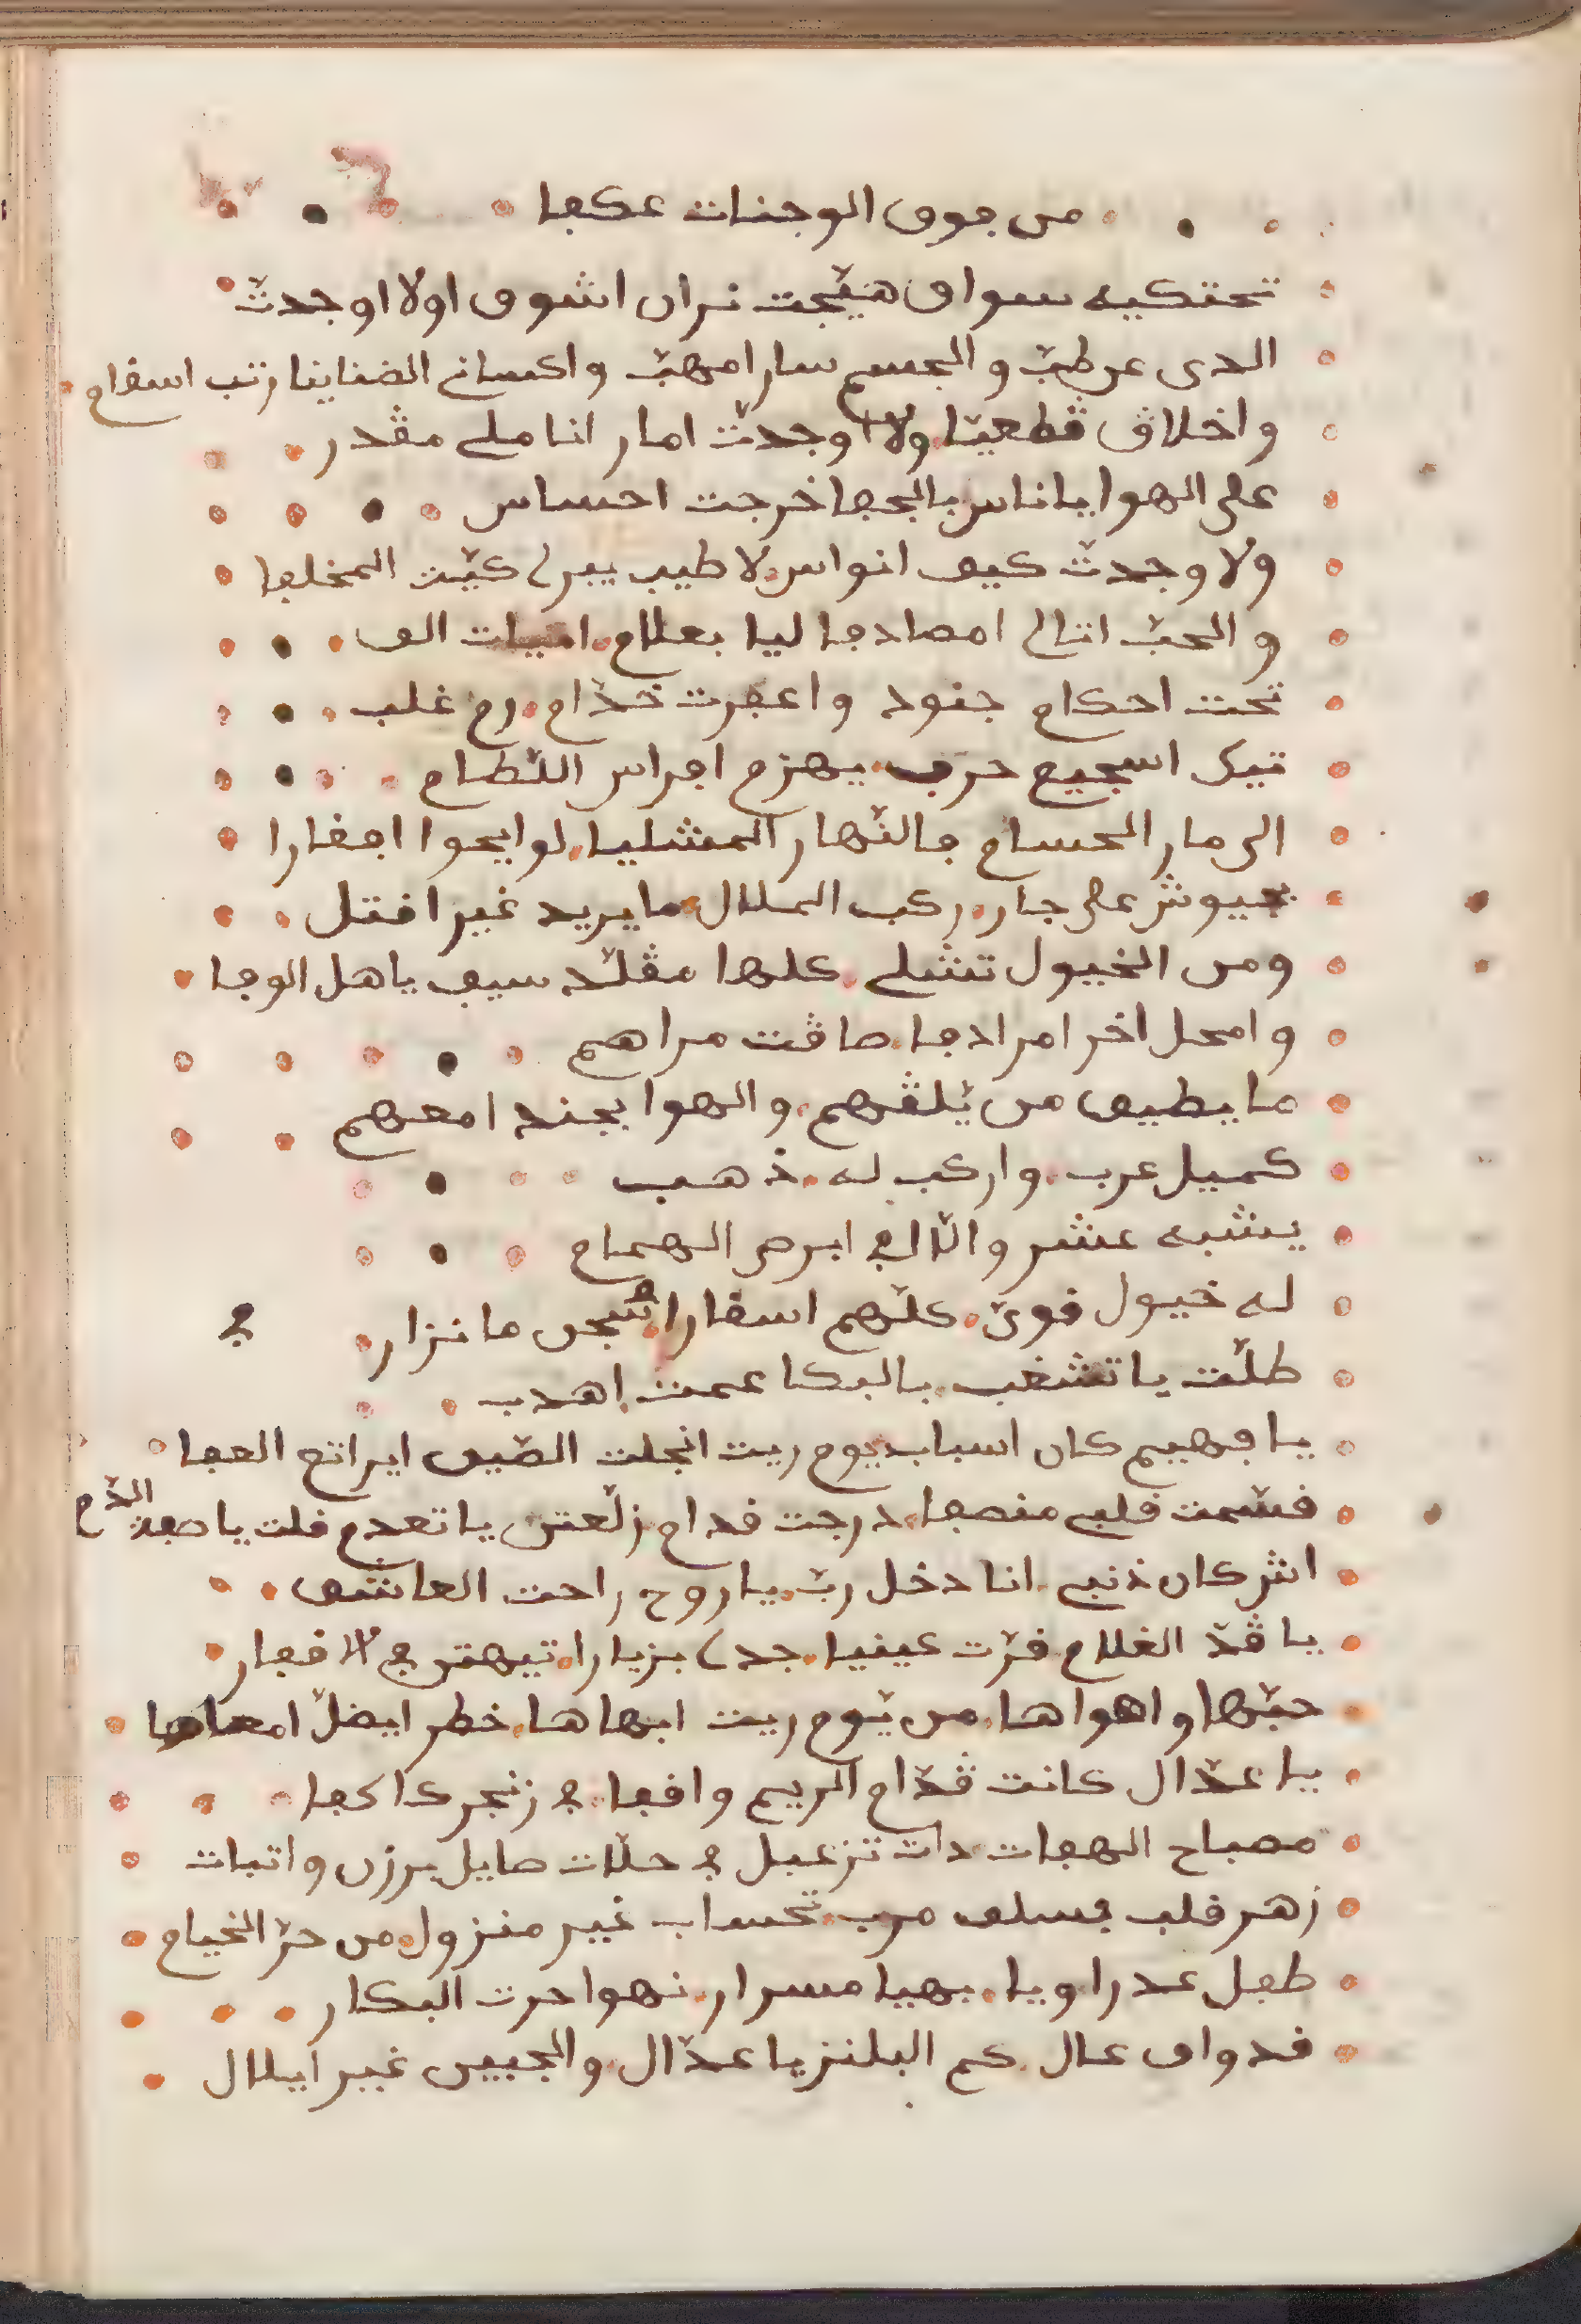 من فوق الوجنات عكفا
تحتكيه سواق هيّجت نيران اشوق اولا اوجدتّ
الدى عر طبّ والجسم سارامهبّ واكسانى الضناينا رتب اسقام
واخلاق قطعيّا ولا اوجدتّ امار انا ملى مقدر
على الهوا ياناس بالجفا خرجت احساس
ولا وجدتّ كيف انواس لا طيب يبرى كيّت المخلفا
والحبّ اتالى امصادفا ليا بعلام اميات الف
تحت احكام جنود واعفرت خدّام رم غلب
تيك اسجيع حرب يهزم افراس اللّطام
الى مار الحسام فالنّهار المشليا لوايحوا اجفارا
بجيوش على جار ركب الملال ما يريد غير اقتل
ومن الخيول تشلى كلها مقلّد سيف ياهل الوفا
وامحل اخر امرادفا صاقت مراهم
ما يطيق من يّلقهم والهوا بجند امعهم
كميل عرب واركب له ذهب
يشبه عشر والّا في ابرص الهمام
له خيول قوىّ كلّهم اسقارا شجن ما نزار في
طلّت يا تشغب بالبكا عمت اهدب
يا فهيم كان اسباب يوم ريت انجلت الضّيق ايراتع العفا
قسّمت قلبى منصفا درجت قدام زلّعتن يا تعدم قلت يا صفة الدّم
اش كان ذنبى انا دخل ربّ يا روح راحت العاشق
يا قدّ الغلام قرّت عينيا جدى بزيارا تيهتى في الاقفار
حبّها واهواها من يّوم ريت ابهاها خطر ايضلّ امعاها
يا عدّال كانت قدّام الريم واقفا في زنجر كاكفا
مصباح الهفات دات تزعبل في حلّات صايل برزن واتبات
زهر قلب بسلف مرب تحساب غير منزول من حرّ الخيام
طفل عدراويا بهيا مسرار نهوا حرت البكار
قد واق عال كم البلنز يا عدّال والجبين غير ايلال